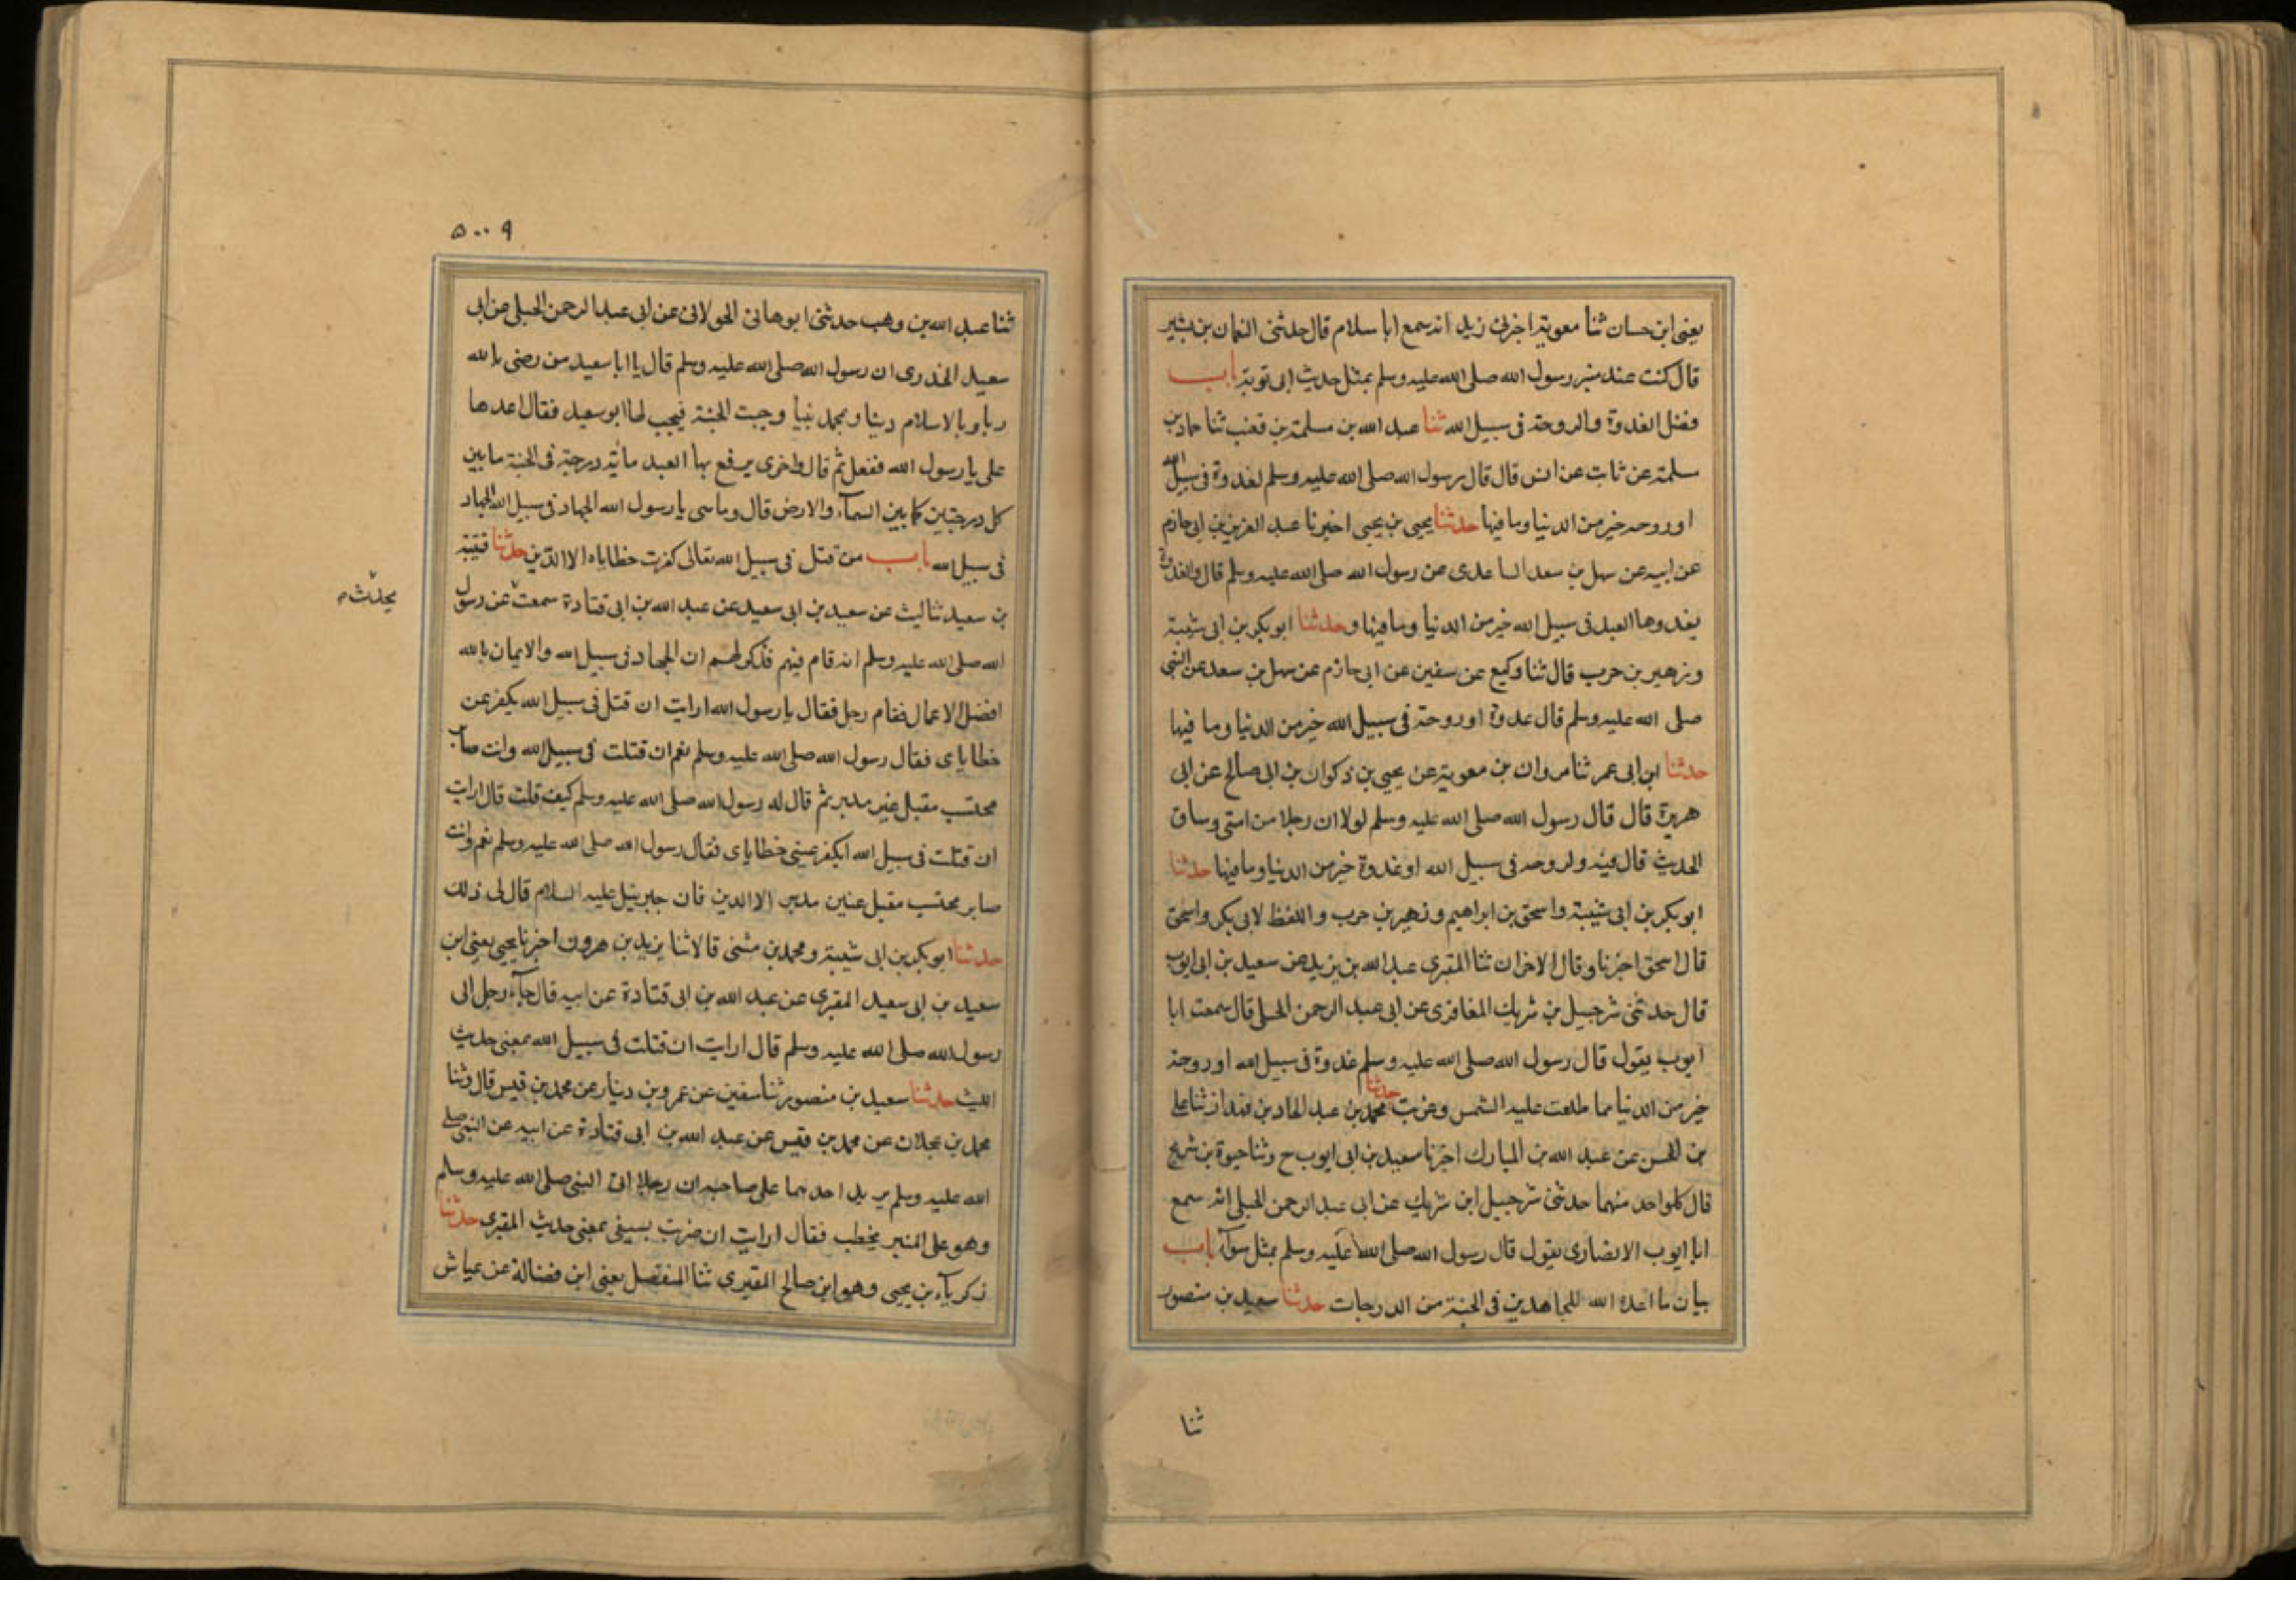 يعنى ابن حسان ثنا معوية اخبرنى زيد انه سمع ابا سلام قال حدثنى النعمان بن بشير
قال كنت عند منبر رسول الله صلى الله عليه وسلم بمثل حديث ابى توبة باب
فضل الغدوة والروحة فى سبيل الله ثنا عبد الله بن مسلمة بن قعنب ثنا حماد بن
سلمة عن ثابت عن انس قال قال رسول الله صلى الله عليه وسلم لغدوة فى سبيل الله
او روحه خير من الدنيا وما فيها حدثنا يحيى بن يحيى اخبرنا عبد العزيز بن ابى حازم
عن ابيه عن سهل بن سعد الساعدى عن رسول الله صلى الله عليه وسلم قال والغدوة
يغدوها العبد فى سبيل الله خير من الدنيا وما فيها وحدثنا ابو بكر بن ابى شيبة
وزهير بن حرب قال ثنا وكيع عن سفين عن ابى حازم عن سهل بن سعد عن النبى
صلى الله عليه وسلم قال غدوة او روحة فى سبيل الله خير من الدنيا وما فيها
حدثنا ابن ابى عمر ثنا مروان بن معوية عن يحيى بن ذكوان بن ابى صالح عن ابى
هريرة قال قال رسول الله صلى الله عليه وسلم لولا ان رجلا من امتى وساق
الحديث قال فيه ولروحه فى سبيل الله او غدوة خير من الدنيا وما فيها حدثنا
ابو بكر بن ابى شيبة واسحق بن ابراهيم وزهير بن حرب واللفظ لابى بكر واسحق
قال اسحق اخبرنا وقال الاخران ثنا المقبرى عبد الله بن يزيد عن سعيد بن ابى ايوب
قال حدثنى شرجيل بن شريك المغافرى عن ابى عبد الرحمن الحبلى قال سمعت ابا
ايوب يقول قال رسول الله صلى الله عليه وسلم غدوة فى سبيل الله او روحة
خير من الدنيا مما طلعت عليه الشمس وغربت حدثنا محمد بن عبد الله بن قهزاذ ثنا على
بن الحسن عن عبد الله بن المبارك اخبرنا سعيد بن ابى ايوب ح وثنا حيوة بن شريح
قال كلواحد منهما حدثنى شرجبيل ابن شريك عن ابى عبد الرحمن الحبلى انه سمع
ابا ايوب الانصارى يقول قال رسول الله صلى الله عليه وسلم بمثل سواء باب
بيان ما اعده الله للمجاهدين فى الجنة من الدرجات حدثنا سعيد بن منصور
ثنا
٥٠٠٩
ثنا عبد الله بن وهب حدثنى ابو هانى الخولانى عن ابى عبد الرحمن الحبلى عن ابى
سعيد الخدرى ان رسول الله صلى الله عليه وسلم قال يا ابا سعيد من رضى بالله
ربا وبالاسلام دينا وبمحمد نبيا وجبت الجنة فيجب لها ابو سعيد فقال اعدها
على يا رسول الله ففعل ثم قال واخرى يرفع بها العبد مائة درجة فى الجنة ما بين
كل درجتين كما بين السماء والارض قال وما هى يا رسول الله الجهاد فى سبيل الله الجهاد
فى سبيل الله باب من قتل فى سبيل الله تعالى كفرت خطاياه الا الدين حدثنا قتيبة
بن سعيد ثنا ليث عن سعيد بن ابى سعيد عن عبد الله بن ابى قتادة سمعت عن رسول
يحدث
الله صلى الله عليه وسلم انه قام فيهم فذكر لهم ان الجهاد فى سبيل الله والايمان بالله
افضل الاعمال فقام رجل فقال يا رسول الله ارايت ان قتل فى سبيل الله يكفر عن
خطاياى فقال رسول الله صلى الله عليه وسلم نعم ان قتلت فى سبيل الله وانت صابر
محتسب مقبل غير مدبر ثم قال له رسول الله صلى الله عليه وسلم كيف قلت قال ارايت
ان قتلت فى سبيل الله ايكفر عينى خطاياى فقال رسول الله صلى الله عليه وسلم نعم وانت
صابر محتسب مقبل غير مدبر الا الدين فان جبريئل عليه السلام قال لى ذلك
حدثنا ابو بكر بن ابى شيبة ومحمد بن مثنى قالا ثنا يزيد بن هرون اخبرنا يحيى يعنى ابن
سعيد بن ابى سعيد المقبرى عن عبد الله بن ابى قتادة عن ابيه قال جاء رجل الى
رسول الله صلى الله عليه وسلم قال ارايت ان قتلت فى سبيل الله بمعنى حديث
الليث حدثنا سعيد بن منصور ثنا سفين عن عمرو بن دينار عن محمد بن قيس قال وثنا
محمد بن عجلان عن محمد بن قيس عن عبد الله بن ابى قتادة عن ابيه عن النبى صلى
الله عليه وسلم يزيد احدهما على صاحبه ان رجلا اتى النبى صلى الله عليه وسلم
وهو على المنبر يخطب فقال ارايت ان ضربت بسيفى بمعنى حديث المقبرى حدثنا
زكرياء بن يحيى وهو ابن صالح المقبرى ثنا المفضل يعنى ابن فضالة عن عياش